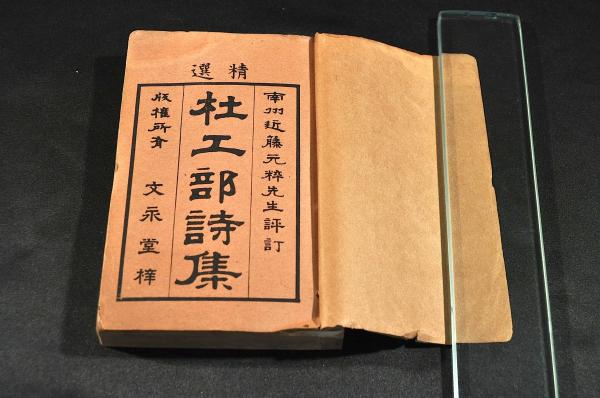 精選
南州近藤元粹先生評訂
杜工部詩集
版權所有
文永堂梓